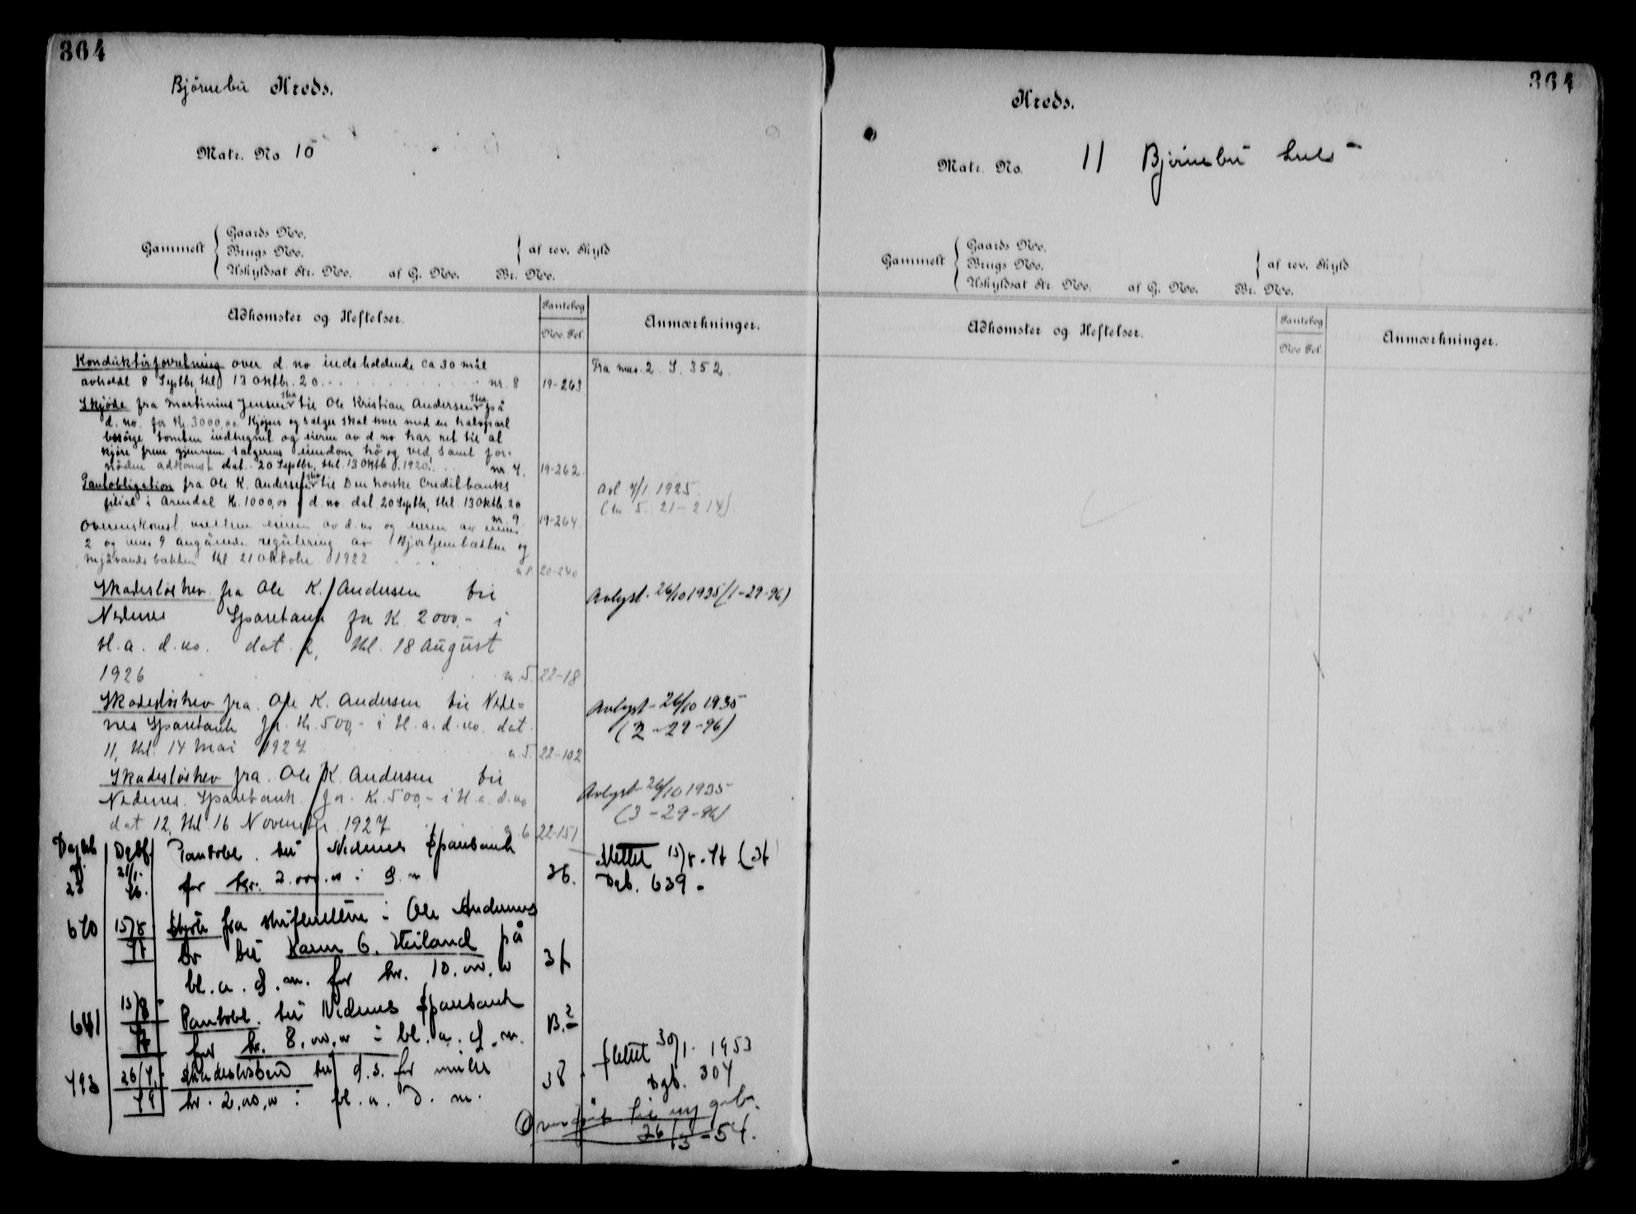 364
Bjørnebu Kreds.
Matr. No 10
Gammelt
Gaards No.
Brugs No.
Uskyldsat Nr. No. af G. No. Br. No.
af rev. Skyld
Adkomster og Heftelser.
Pantebog
No. Fol.
Anmærkninger.
Konduktørforretning over d. no indeholdende ca 30 mål
avholdt 8 Septbr. thl 13 Oktbr. 20 nr. 8 19-263
Fra mnr. 2. S. 352.
Skjøde fra Martinius Jensen til Ole Kristian Andersen på
d. no. for Kr. 3000,00. Kjøper og sælger skal hver med en halvpart
besørge tomten indhegnet og eieren av d no har ret til at
kjøre frem gjennem sælgerens eiendom hø og ved, samt for-
nøden adkomst. dat. 20 Septbr, thl. 13 Oktb. 1920. nr. 7. 19-262
Pantobligation fra Ole K. Andersen til Den norske Creditbanks
filial i Arendal Kr. 1000,00 i d. no. dat 20 Septbr, thl. 13 Oktb. 20
nr. 9 19-264
Avl 7/1 1925.
(nr 5. 21-214)
Overenskomst mellem eieren av d. no og eieren av mnr.
2 og mnr 9 angående regulering av bækken og
bækken thl. 21 Oktober 1922
nr. 8 20-240
Skadesløsbrev fra Ole K. Andersen til
Nedenes Sparebank for K. 2000,- i
bl. a. d. no. dat. 2, thl. 18 August
1926 n. 5. 22-18
Avlyst. 26/10 1935 (1-29-96)
Skadesløsbrev fra Ole K. Andersen til Nede-
nes Sparebank for Kr. 500,- i bl. a. d. no. dat.
11, thl. 14 Mai 1927 n. 5. 22-102
Avlyst. 26/10 1935
(2-29-96)
Skadesløsbrev fra Ole K. Andersen til
Nedenes Sparebank for Kr. 500,- i bl. a. d. no
dat 12, thl 16 November 1927 n. 6 22-151
Avlyst 26/10 1935
(3-29-96)
Pantobl. til Nedenes Sparebank
for kr. 2.000.00 i d. n. 36.
Slettet 15/8. 47 (37
Dgb. 639.
670 15/8 47 Skjøte fra skifterettен i Ole Andersens
bo til Karen G. Heiland på
bl. a. d. n. for kr. 10.000.00 37
641 15/8 47 Pantobl. til Nedenes Sparebank
for kr. 8.000,00 i bl. a. d. n. B. 2
793 26/7. 49 Skadesløsbrev til d. s. for inntil
kr. 2.000,00 i bl. a. d. n. 38
Slettet 30/1. 1953
Dgb. 304
Overført til ny gnb.
26/3-54.
364
Kreds.
Matr. No. 11 Bjørnebu
Gammelt
Gaards No.
Brugs No.
Uskyldsat Nr. No. af G. No. Br. No.
af rev. Skyld
Adkomster og Heftelser.
Pantebog
No. Fol.
Anmærkninger.